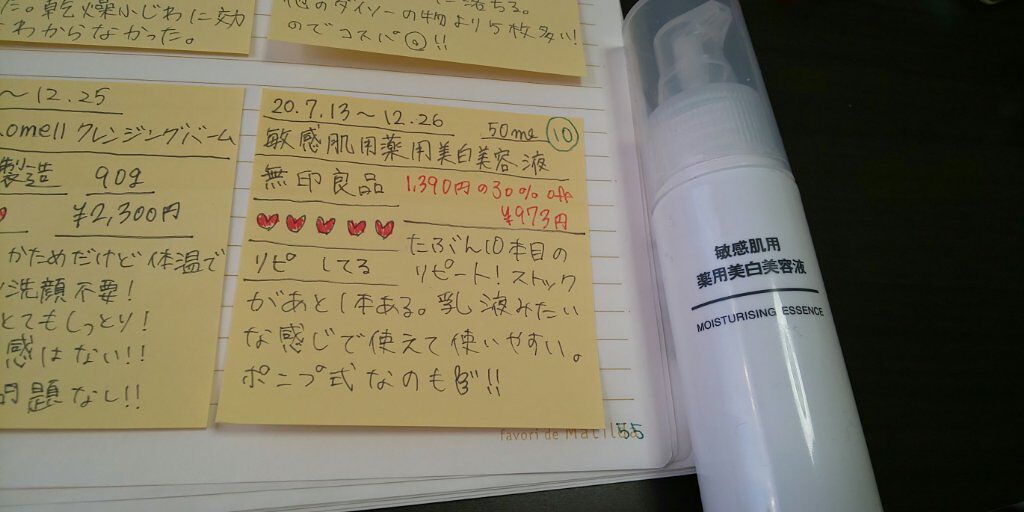 た。乾燥小じわに効
わからなかった。
他のダイソーの物より5枚多い!
のでコスパ◎!!
～12.25
omell クレンジングバーム
製造 90g
¥2,300円
かためだけど体温で
洗顔不要!
とてもしっとり!
感はない!!
問題なし!!
20.7.13～12.26
50ml ⑩
敏感肌用薬用美白美容液
無印良品
1,390円の30% off
¥973円
リピ してる
たぶん10本目の
リピート!ストック
があと1本ある。乳液みたい
な感じで使えて使いやすい。
ポンプ式なのも
favori de
55
敏感肌用
薬用美白美容液
MOISTURISING ESSENCE